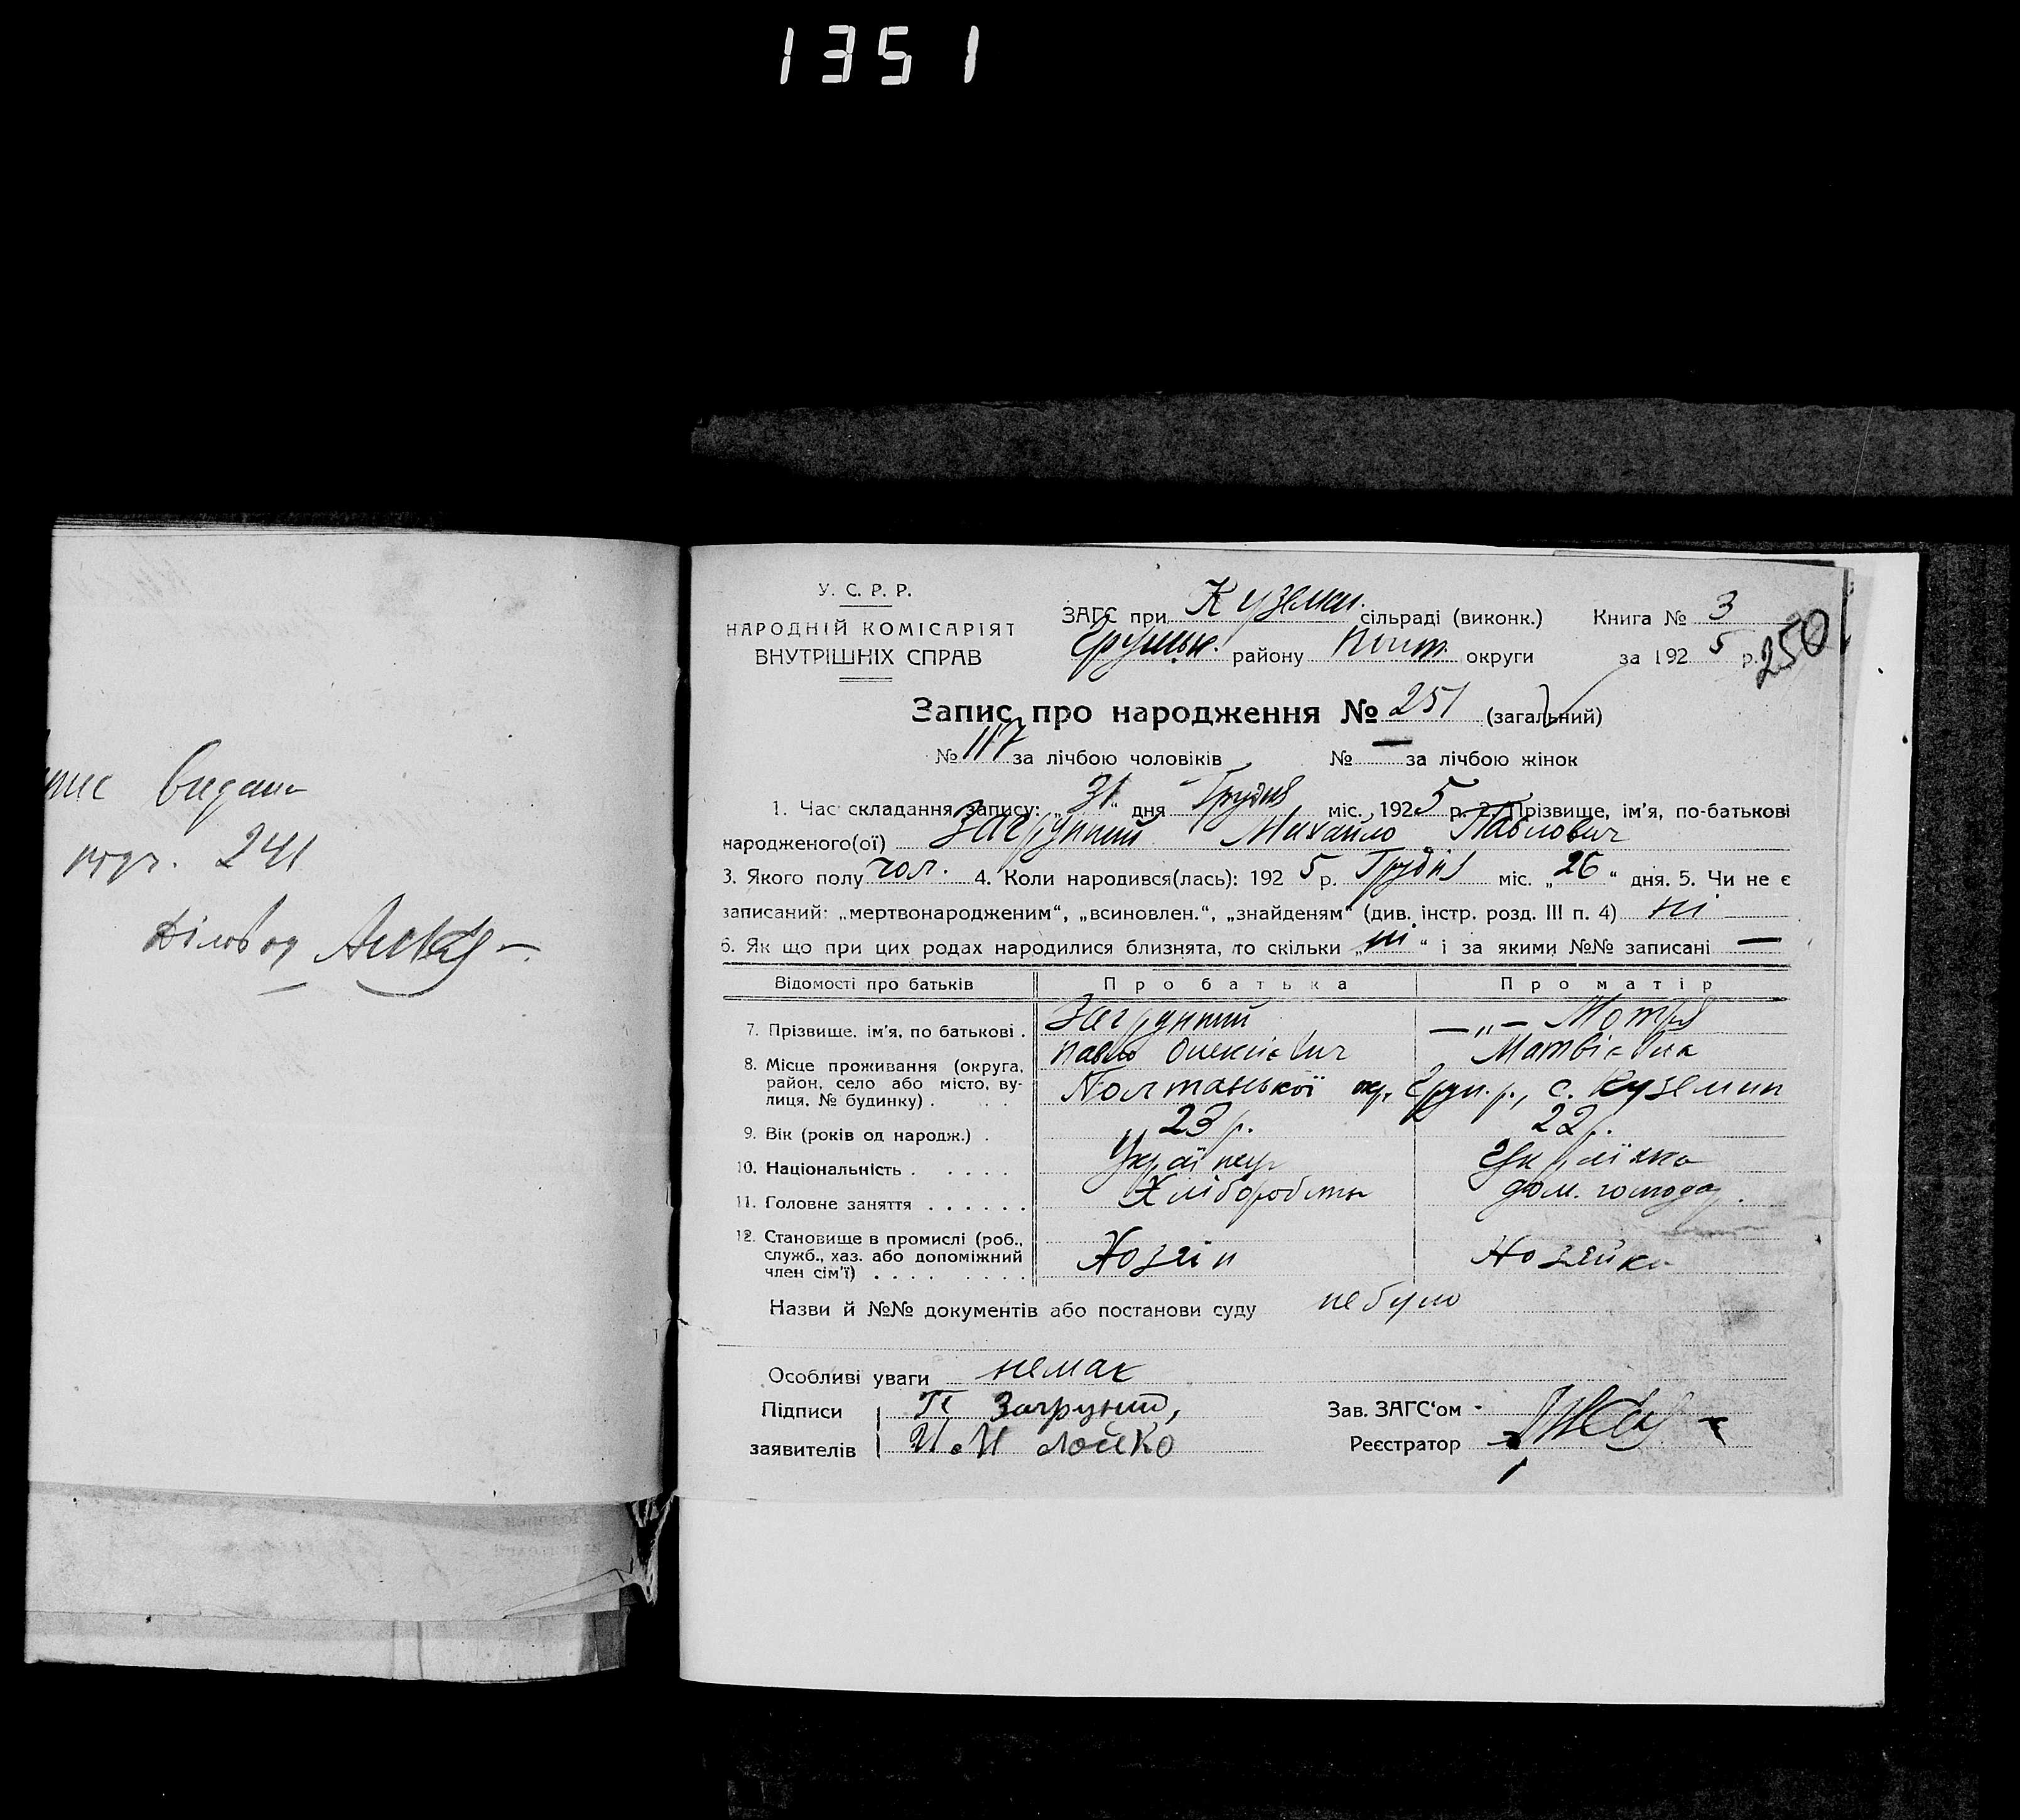 1351
видана
241
Діловод
У. С. Р. Р.
НАРОДНІЙ КОМІСАРІЯТ
ВНУТРІШНІХ СПРАВ
ЗАГС при Куземин. сільраді (виконк.) Книга № 3
Грунськ. району Полт. округи за 1925 р.
250
Запис про народження № 251 (загальний)
№ 117 за лічбою чоловіків № — за лічбою жінок
1. Час складання запису: „31“ дня Грудня міс. 1925 р. 2. Прізвище, ім'я, по-батькові
народженого(ої) Загрунний Михайло Павлович
3. Якого полу чол. 4. Коли народився(лась): 1925 р. Грудня міс. „26“ дня. 5. Чи не є
записаний: „мертвонародженим“, „всиновлен.“, „знайденям“ (див. інстр. розд. III п. 4) ні
6. Як що при цих родах народилися близнята, то скільки „ні“ і за якими №№ записані —
Відомості про батьків Про батька Про матір
7. Прізвище, ім'я, по батькові . Загрунний Павло Олексієвич —„— Мотря Матвієвна
8. Місце проживання (округа,
район, село або місто, вулиця, № будинку) . . . Полтавської окр. Грун. р., с. Куземин
9. Вік (років од народж.) . 23 р. 22 р.
10. Національність . . . . . Українец Українка
11. Головне заняття . . . . . . Хлібороботы дом. господар.
12. Становище в промислі (роб.,
служб., хаз. або допоміжний
член сім'ї) . . . . . . . . . Хозяін Хозяйка
Назви й №№ документів або постанови суду не було
Особливі уваги немає
Підписи П Загруний,
заявителів И. И Лойко
Зав. ЗАГС'ом
Реєстратор